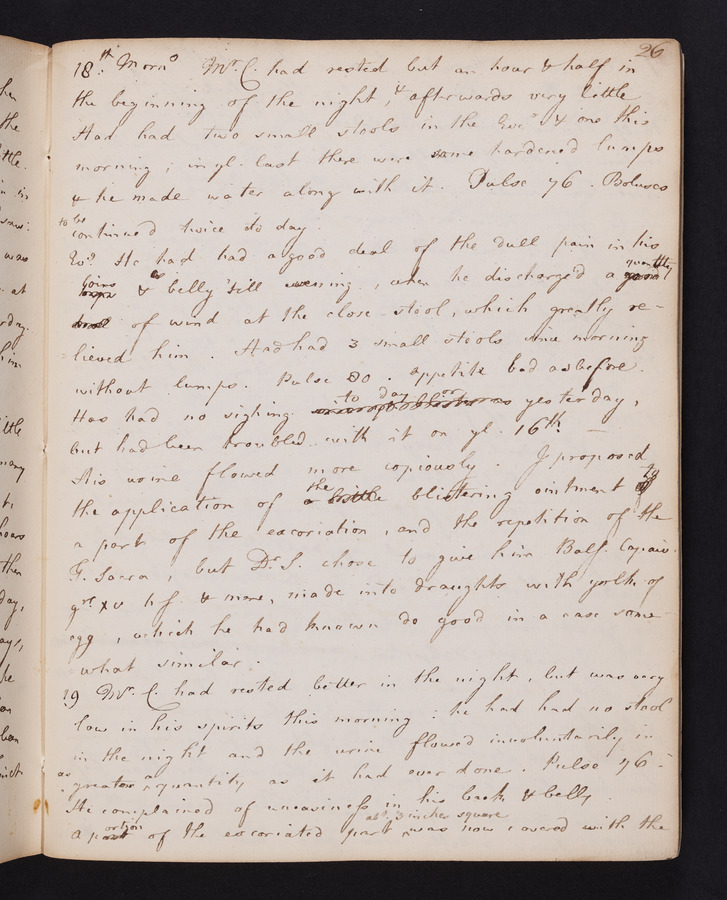 26
18th. Morng Mr. C. had rested but an hour & half in
the beginning of the night, & afterwards very little
Had had two small stools in the Eveg & one this
morning; in ye. last there were some hardened lumps
& he made water along with it. Pulse 76. Boluses
to be
continued twice to day.
Eveg. He had had a good deal of the dull pain in his
loins & belly till evening, when he discharged a quantity
of wind at the close stool, which greatly re-
lieved him. Had had 3 small stools since morning
without lumps. Pulse 80. appetite bad as before.
Has had no sighing to day or yesterday,
but had been troubled with it on ye. 16th. —
His urine flowed more copiously. I proposed
the application of the blistering ointment to
a part of the excoriation, and the repetition of the
F. Sacra, but Dr. S. chose to give him Bals. Copaiv.
grs. xv h.s. & mane, made into draughts with yolk of
egg, which he had known do good in a case some
what similar.
19 Mr. C. had rested better in the night, but was very
low in his spirits this morning: he had had no stool
in the night and the urine flowed involuntarily in
as great a quantity as it had ever done. Pulse 76-
He complained of uneasiness in his back & belly.
abt. 3 inches square
A portion of the excoriated part was now covered with the